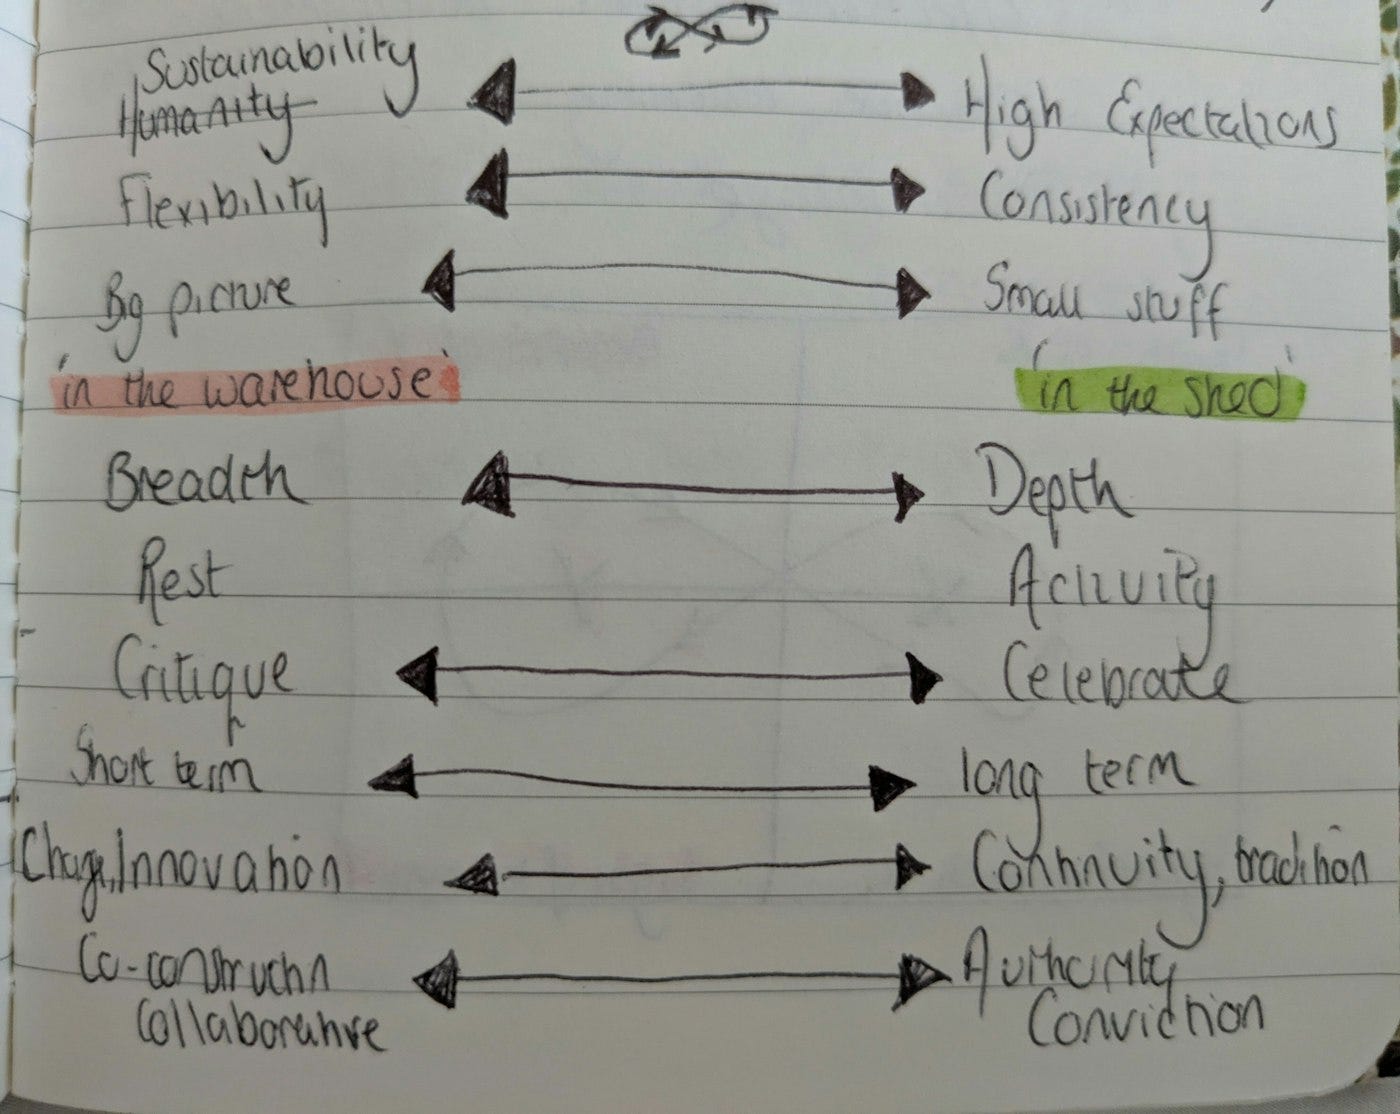 Sustainability
Humanity High Expectations
Flexibility Consistency
Big picture Small stuff
'in the warehouse' 'in the shed'
Breadth Depth
Rest Activity
Critique Celebrate
Short term long term
Change, Innovation Continuity, tradition
Co-constructn Authority
Collaborative Conviction